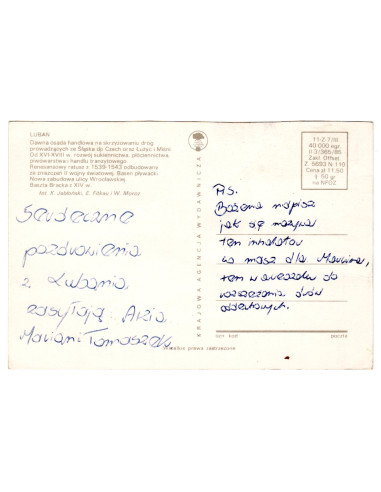 LUBAŃ
Dawna osada handlowa na skrzyżowaniu dróg
prowadzących ze Śląska do Czech oraz Łużyc i Miśni.
Od XVI-XVIII w. rozwój sukiennictwa, płóciennictwa,
piwowarstwa i handlu tranzytowego.
Renesansowy ratusz z 1539-1543 odbudowany
ze zniszczeń II wojny światowej. Basen pływacki
Nowa zabudowa ulicy Wrocławskiej.
Baszta Bracka z XIV w.
fot. K. Jabłoński, E. Filkau i W. Moroz
Serdeczne
pozdrowienia
z Lubania
zasyłają Ania
Marian i Tomaszek
KRAJOWA AGENCJA WYDAWNICZA
11-2.7/III
40 000 egz.
II 3/365/85
Zakł. Offset.
Z. 5693 N-110
Cena zł 11,50
+ 50 gr
na NFOZ
P.S.
Bożena napisz
jak się nazywa
ten inhalator
co masz dla Marcina,
ten w areozolu do
rozszerzania dróg
oddechowych.
kod
poczta
prawa zastrzeżone